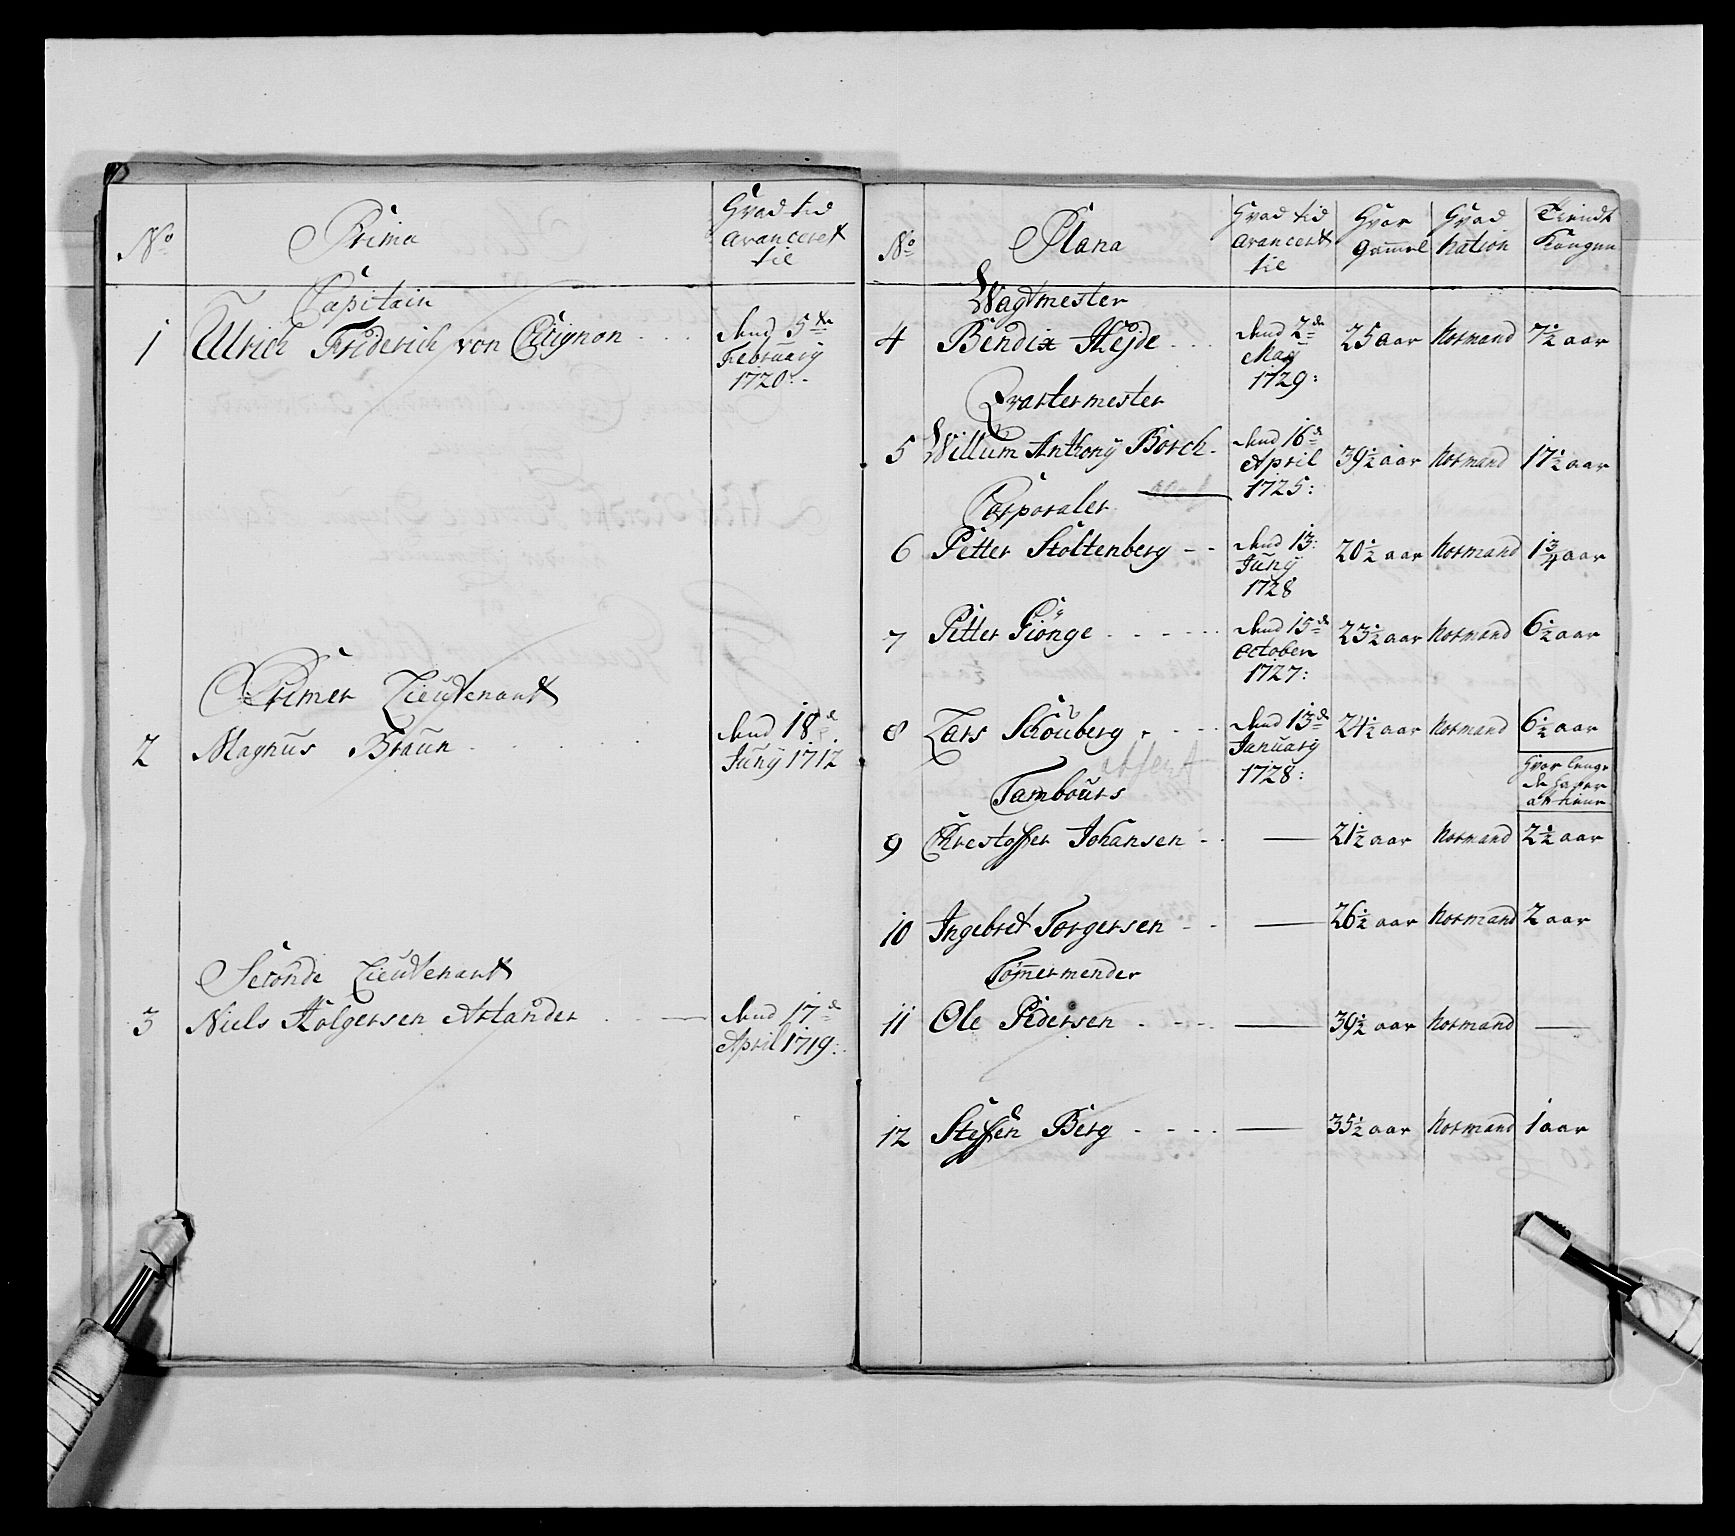 No
Prima
Hvad tid
avanceret
til
Capitain
1 Ulrich Friderich von Cicignon
dend 5te
February
1720
Primer Lieutenant
2 Magnus Braun
dend 18de
Juny 1712
Seconde Lieutenant
3 Niels Holgersen Arlander
dend 17de
April 1719
No
Plana
Hvad tid
avanceret
til
Hvor
gammel
Hvad
Nation
Tiendt
Kongen
Wagtmester
4 Bendix Hejde
dend 2de
May
1729:
25 aar Normand 7½ aar
Qvartermester
5 Willum Anthony Borch
dend 16de
April
1725:
39½ aar Normand 17½ aar
Corporaler
6 Petter Stoltenberg
dend 13:
Juny
1728
20½ aar Normand 1¾ aar
7 Petter Giönge
dend 15de
October
1727:
23½ aar Normand 6½ aar
8 Lars Schouberg
dend 13de
January
1728:
24½ aar Normand 6½ aar
absent
Hvor lenge
de hafver
Tambours
9 Chrestoffer Johansen — 21½ aar Normand 2½ aar
10 Ingebret Torgersen — 26½ aar Normand 2 aar
Tömermender
11 Ole Pedersen — 39½ aar Normand —
12 Steffen Berg — 35½ aar Normand 1 aar